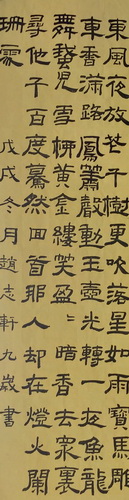 東風夜放花千樹更吹落星如雨寶馬雕
車香滿路鳳簫聲動玉壺光轉一夜魚龍
舞蛾兒雪柳黃金縷笑盈〻暗香去衆裏
尋他千百度驀然回首那人却在燈火闌
珊處 戊戌冬月趙志軒九歲書